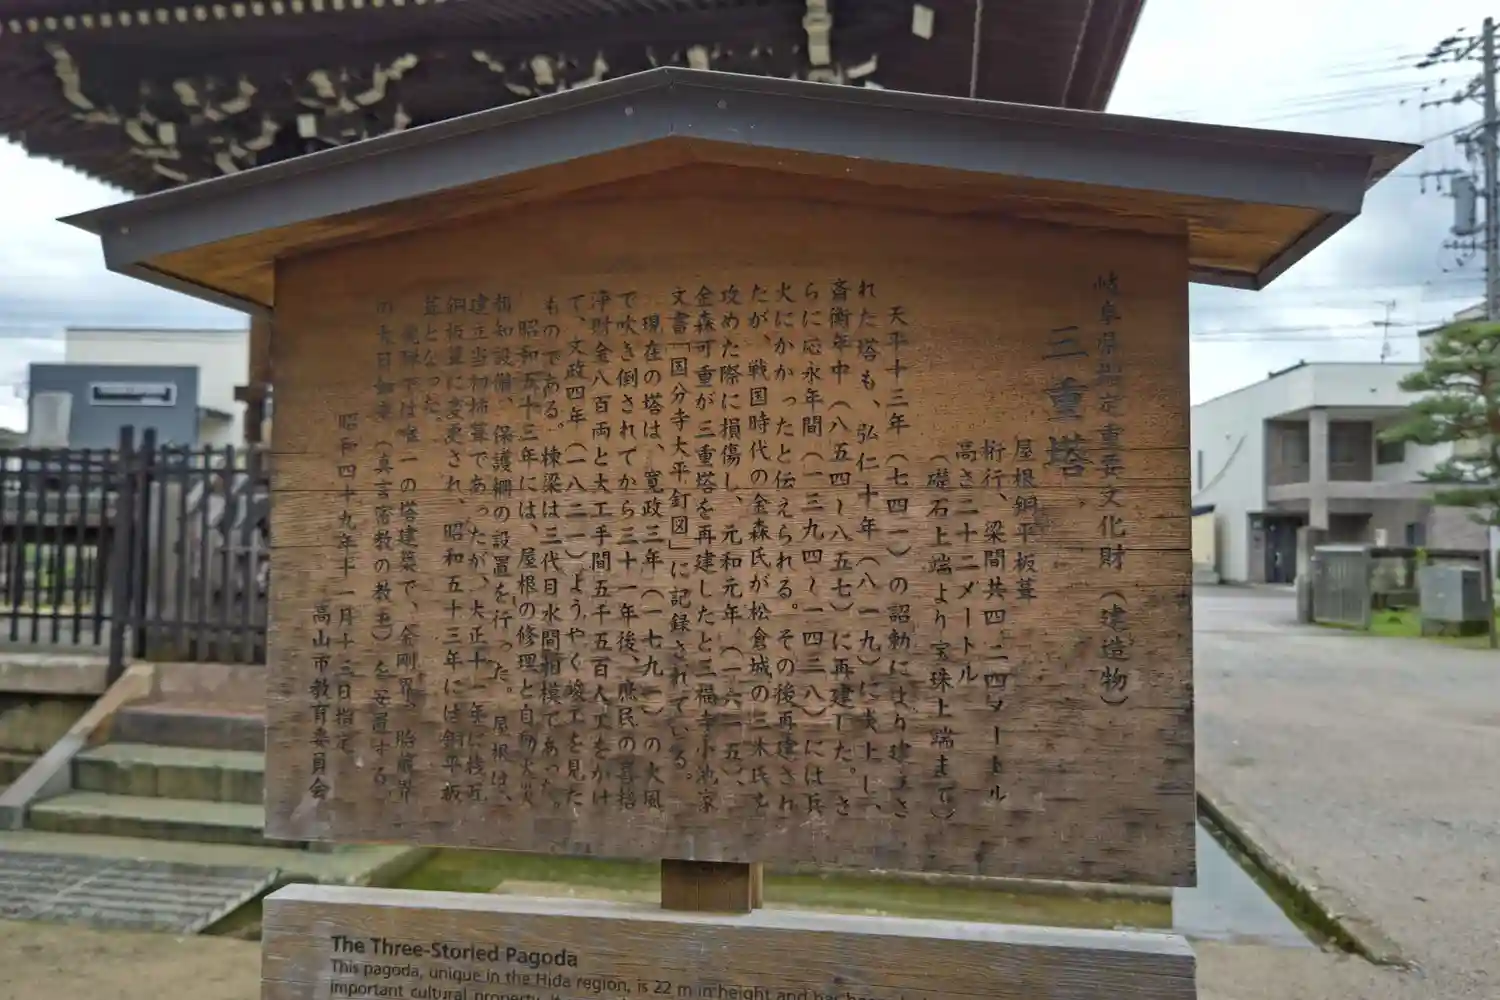 岐阜県指定重要文化財（建造物）
三重塔
屋根銅平板葺
桁行、梁間共四・二四メートル
高さ二十二メートル
（礎石上端より宝珠上端まで）
天平十三年（七四一）の詔勅により建立さ
れた塔も、弘仁十年（八一九）に炎上し、
斎衡年中（八五四～八五七）に再建した。さ
らに応永年間（一三九四～一四三八）には兵
火にかかったと伝えられる。その後再建され
たが、戦国時代の金森氏が松倉城の三木氏を
攻めた際に損傷し、元和元年（一六一五）、
金森可重が三重塔を再建したと三福寺小池家
文書「国分寺大平釘図」に記録されている。
現在の塔は、寛政三年（一七九一）の大風
で吹き倒されてから三十一年後、庶民の喜捨
浄財金八百両と大工手間五千五百人工をかけ
て、文政四年（一八二一）ようやく竣工を見た
ものである。棟梁は三代目水間相模であった。
昭和五十三年には、屋根の修理と自動火災
報知設備、保護柵の設置を行った。屋根は、
建立当初柿葺であったが、大正十一年に桟瓦
銅板葺に変更され、昭和五十三年には銅平板
葺となった。
飛騨では唯一の塔建築で、金剛界、胎蔵界
の大日如来（真言密教の教主）を安置する。
昭和四十九年十一月十三日指定
高山市教育委員会
The Three-Storied Pagoda
This pagoda, unique in the Hida region, is 22 m in height and has been
important cultural property.